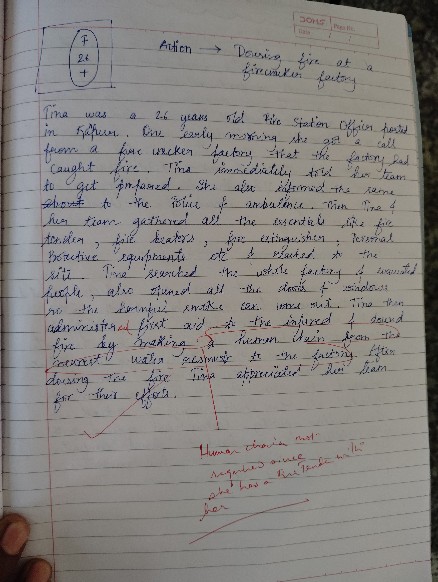 DOMS
Page No.
Date
F
26
+
Action → Dousing fire at a
firecracker factory
Tina was a 26 years old Fire Station Officer posted
in Raipur. One early morning she got a call
from a fire cracker factory that the factory had
caught fire. Tina immediately told her team
to get prepared. She also informed the same
to the Police & ambulance. Then Tina &
her team gathered all the essentials like fire
tender, fire beaters, fire extinguisher, Personal
Protective equipments etc & reached to the
site. Tina searched the whole factory & evacuated
people, also opened all the doors & windows
so the harmful smoke can come out. Tina then
administered first aid to the injured & dousd
fire by making a human chain from the
nearest water resource to the factory. After
dousing the fire Tina appreciated her team
for their efforts.
Human chain not
required since
she has a fire tender with
her